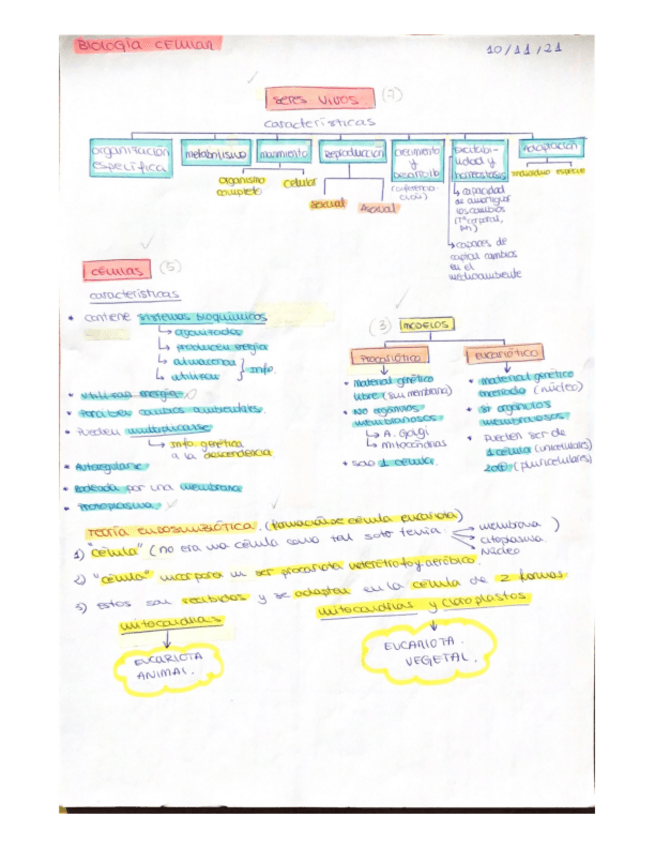 BIOLOGÍA CELULAR
10/11/21
SERES VIVOS (7)
características
organización específica
metabolismo
movimiento
Reproducción
crecimiento y desarrollo
excitabilidad y homeostasis
Adaptación
organismo completo
celular
sexual
Asexual
individuo
especie
capacidad
de amortiguar
los cambios
(Tª corporal,
capaces de
captar cambios
en el
medioambiente
CÉLULAS (5)
características
• contiene sistemas bioquímicos
organizados
producen energía
almacenan
utilizan
} Info.
• utilizan energía
• Perciben cambios ambientales.
• Pueden multiplicarse
Info genética
a la descendencia
• Autoregularse
• Rodeada por una membrana
• Protoplasma
(3) MODELOS
PROCARIÓTICO
• Material genético
libre (sin membrana)
• NO orgánulos
membranosos
A. Golgi
mitocondrias
• solo 1 célula.
EUCARIÓTICO
• material genético
encerrado (núcleo)
• SI orgánulos
membranosos.
• Pueden ser de
1 célula (unicelulares)
(pluricelulares)
TEORÍA ENDOSIMBIÓTICA. (formación de célula eucariota)
1) "célula" (no era una célula como tal solo tenía membrana )
citoplasma
Núcleo
2) "célula" incorpora un ser procariota heterótrofo y aeróbico.
3) Estos son recibidos y se adaptan en la célula de 2 formas
mitocondrias y cloroplastos
mitocondrias
EUCARIOTA
ANIMAL.
EUCARIOTA.
VEGETAL.